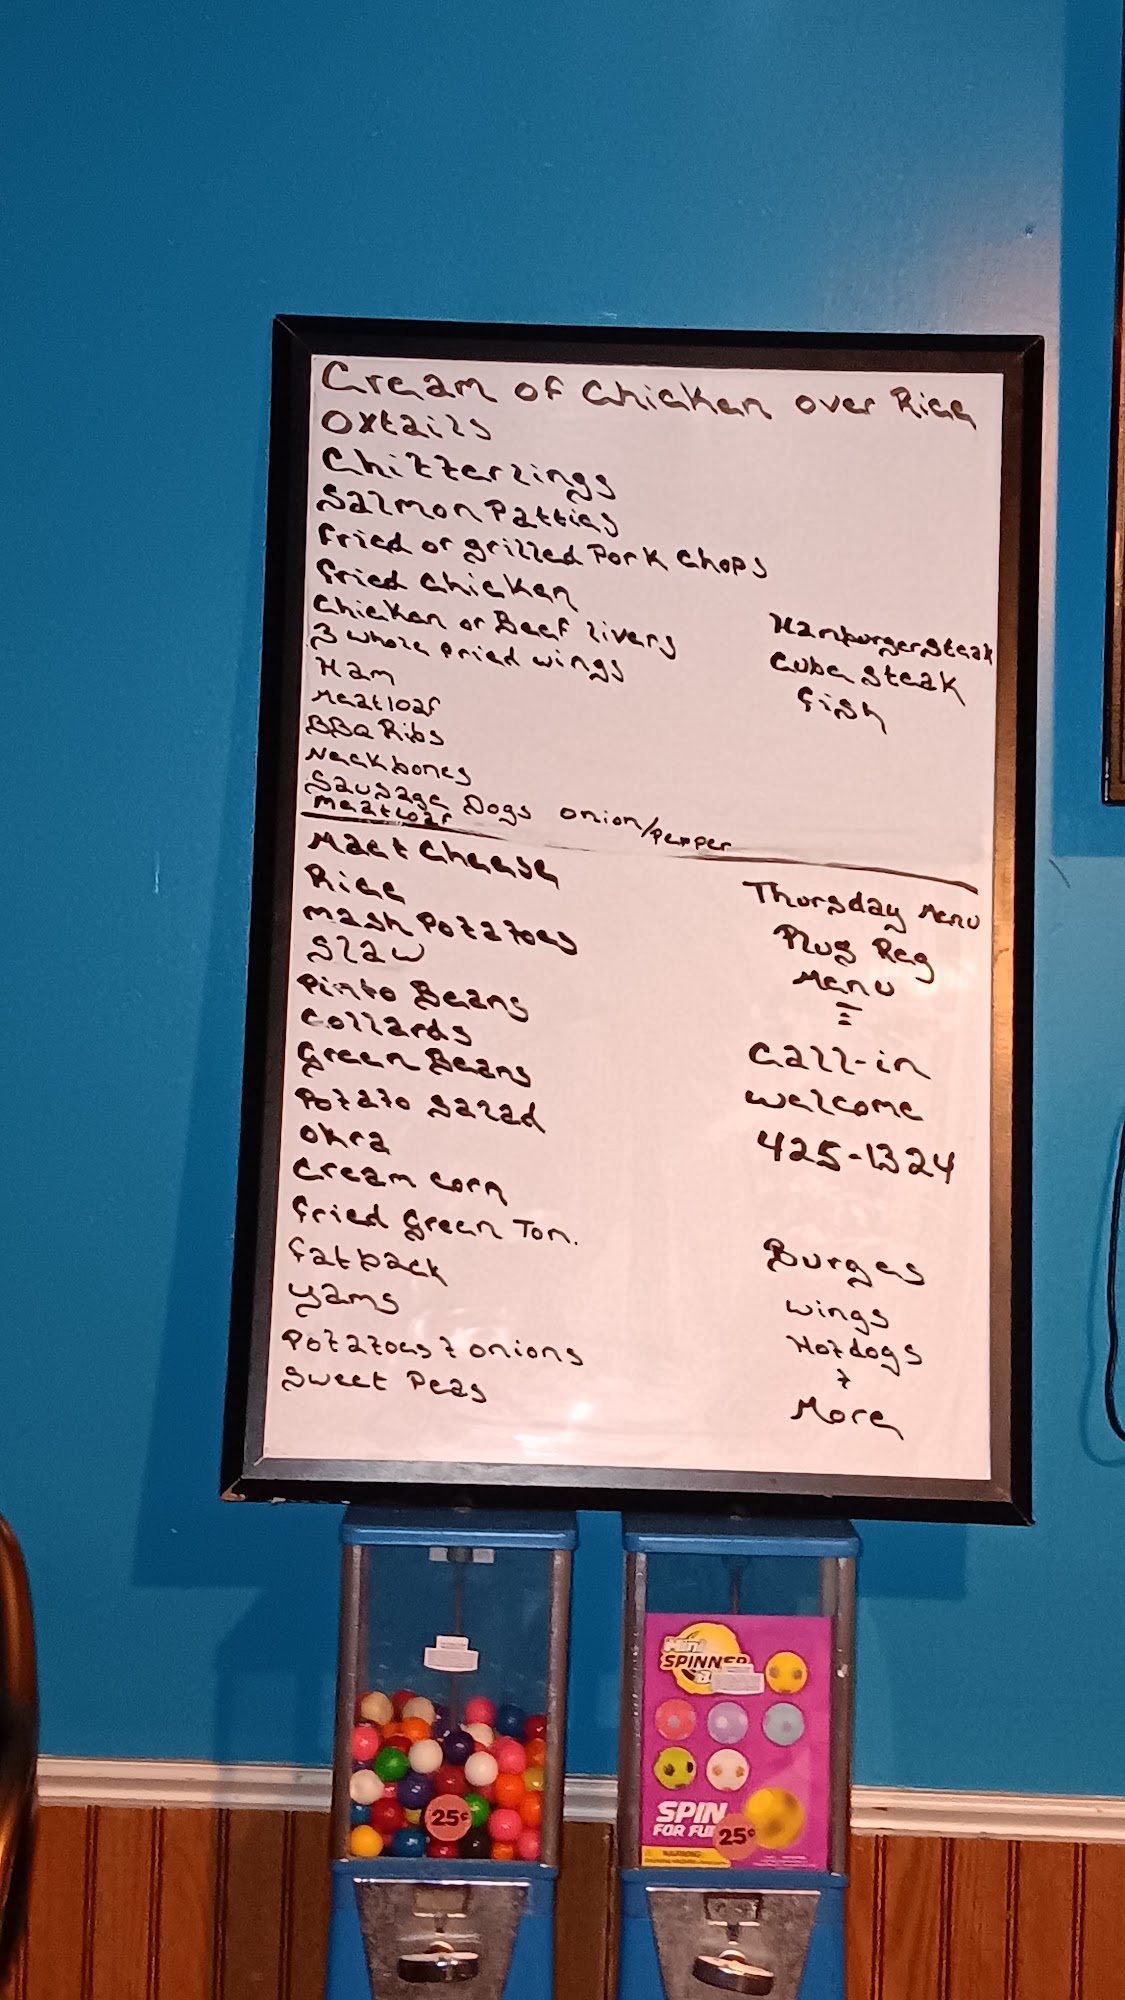 Cream of Chicken over Rice
Oxtails
Chitterlings
Salmon Patties
Fried or grilled Pork Chops
Fried Chicken
Chicken or Beef livers
3 whole fried wings
Ham
Meatloaf
BBQ Ribs
Neckbones
Sausage Dogs onion/pepper
Meatloaf
Hamburger Steak
Cube Steak
Fish
Mac + Cheese
Rice
Mash Potatoes
Slaw
Pinto Beans
Collards
Green Beans
Potato Salad
Okra
Cream Corn
Fried Green Tom.
Fatback
Yams
Potatoes & onions
Sweet Peas
Thursday Menu
Plus Reg
Menu
Call-in
Welcome
425-1324
Burges
Wings
Hotdogs
&
More
Mini
SPINNER
25¢
SPIN
FOR FU
25¢
WARNING